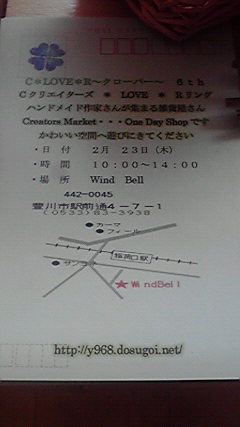 C＊LOVE＊R～クローバー～ 6th
Cクリエイターズ ＊ LOVE ＊ Rリング
ハンドメイド作家さんが集まる雑貨屋さん
Creators Market・・・One Day Shopです
かわいい空間へ遊びにきてください
・日 付 2月 23日(木)
・時 間 10:00～14:00
・場 所 Wind Bell
442-0045
豊川市駅前通4-7-1
(0533)83-3938
●カーマ
●フィール
稲荷口駅
●サンヨネ
★WindBell
http://y968.dosugoi.net/